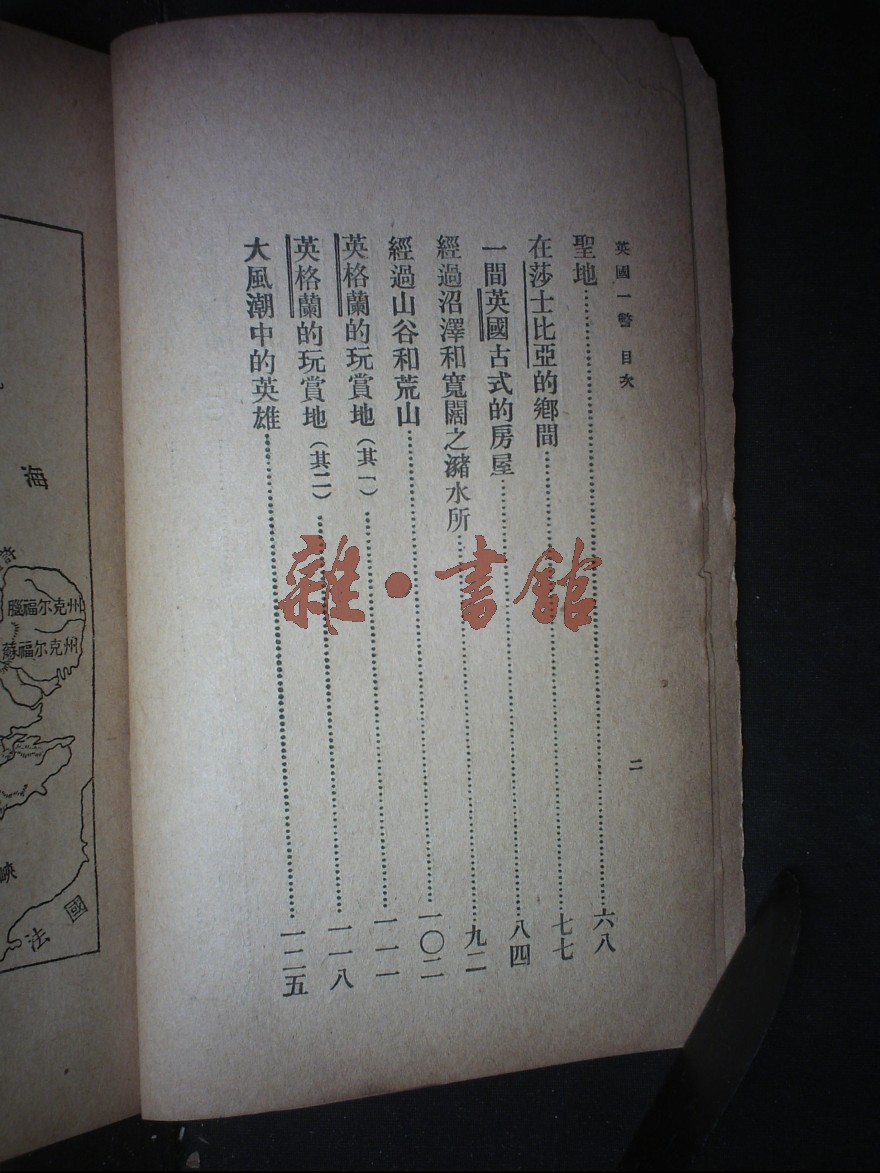 英國一瞥 目次
二
聖地……六八
在莎士比亞的鄉間……七七
一間英國古式的房屋……八四
經過沼澤和寬闊之瀦水所……九二
經過山谷和荒山……一〇二
英格蘭的玩賞地(其一)……一一一
英格蘭的玩賞地(其二)……一一八
大風潮中的英雄……一二五
雜·書館
海
腦福尔克州
蘇福尔克州
峽
法國